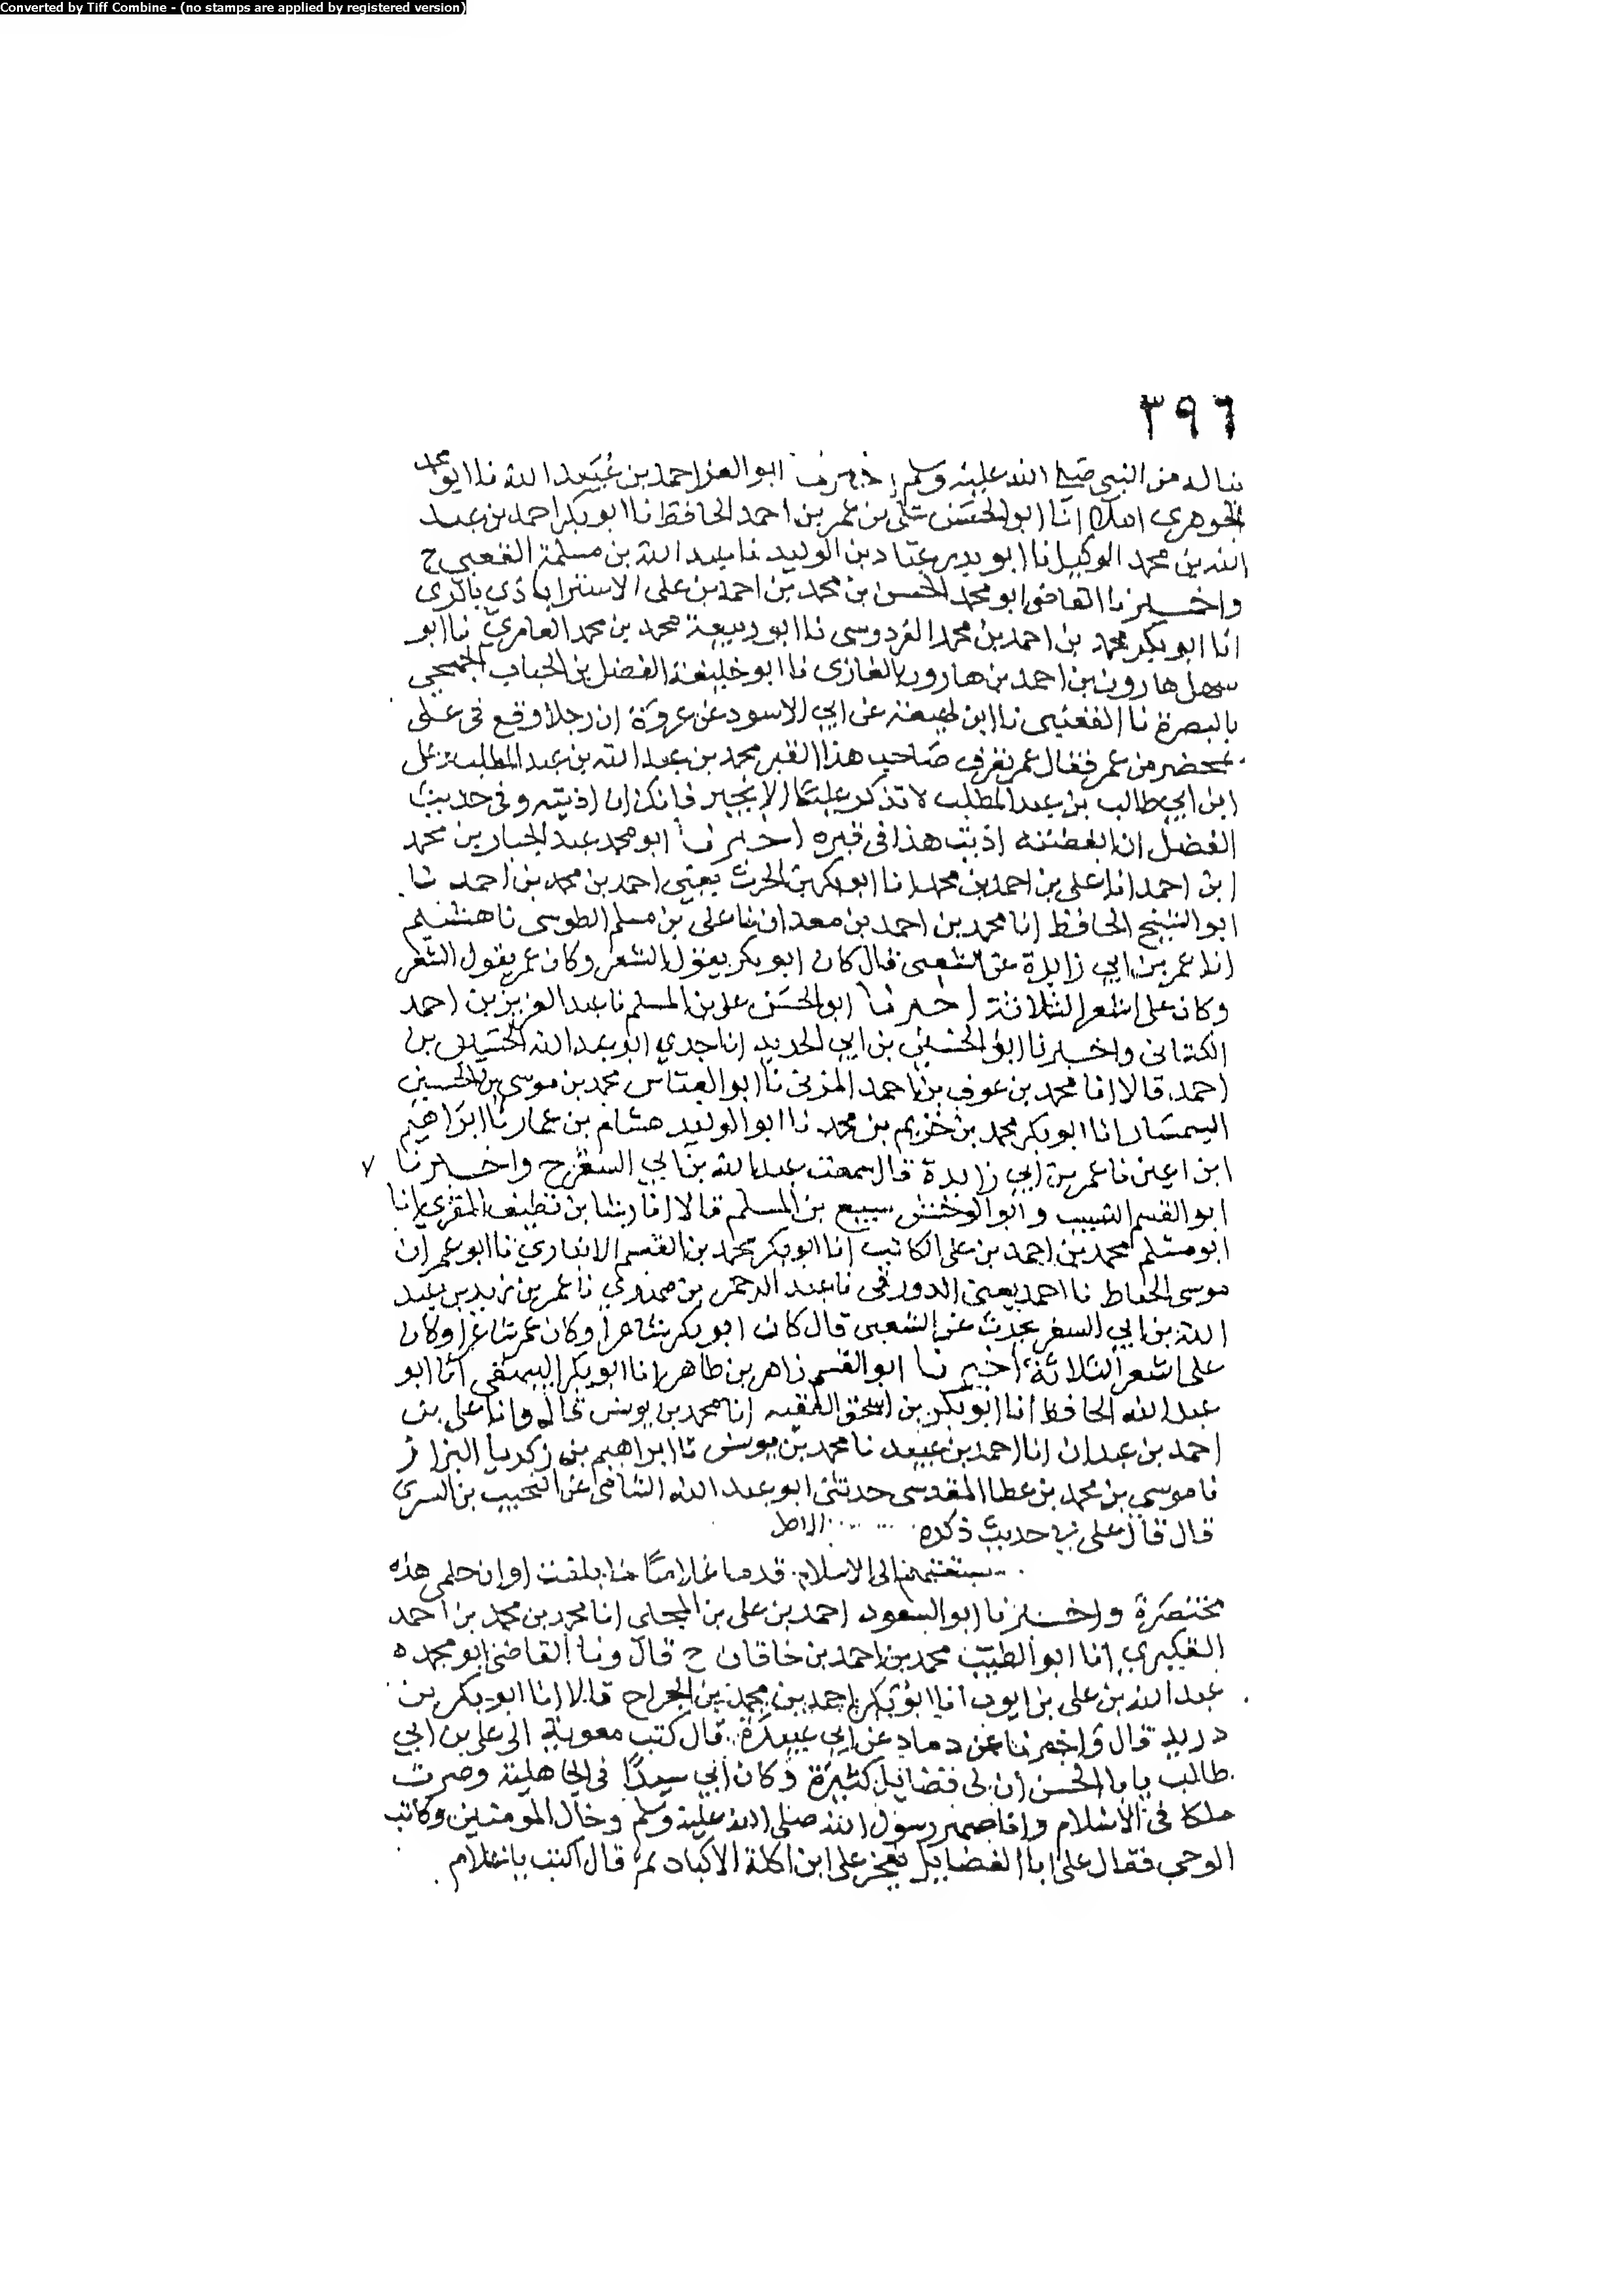 Converted by Tiff Combine - (no stamps are applied by registered version)
٣٩٦
ينال من النبي صلى الله عليه وسلم اخبرنا ابو العز احمد بن عبيد الله نا ابو محمد
الجوهري املا انا ابو الحسن علي بن عمر بن احمد الحافظ نا ابو بكر احمد بن عبد
الله بن محمد الوكيل نا ابو بدر عباد بن الوليد نا عبد الله بن مسلمة القعنبي ح
واخبرنا القاضي ابو محمد الحسن بن محمد بن احمد بن علي الاستراباذي بالري
انا ابو بكر محمد بن احمد بن محمد الفردوسي نا ابو ربيعة محمد بن محمد العامري نا ابو
سهل هارون بن احمد بن هارون الغازي نا ابو خليفة الفضل بن الحباب الجمحي
بالبصرة نا القعنبي نا ابن لهيعة عن ابي الاسود عن عروة ان رجلا وقع في علي
بمحضر من عمر فقال عمر تعرف صاحب هذا القبر محمد بن عبد الله بن عبد المطلب وعلي
ابن ابي طالب بن عبد المطلب لا تذكر عليا الا بخير فانك ان اذيته وفي حديث
الفضل ان ابغضته اذيت هذا في قبره اخبرنا ابو محمد عبد الجبار بن محمد
ابن احمد انا علي بن احمد بن محمد انا ابو بكر بن الحرث يعني احمد بن محمد بن احمد نا
ابو الشيخ الحافظ انا محمد بن احمد بن معدان نا علي بن مسلم الطوسي نا هشيم
انا عمر بن ابي زايدة عن الشعبي قال كان ابو بكر يقول الشعر وكان عمر يقول الشعر
وكان علي اشعر الثلاثة اخبرنا ابو الحسن علي بن المسلم نا عبد العزيز بن احمد
الكتاني واخبرنا ابو الحسين بن ابي الحديد انا جدي ابو عبد الله الحسين بن
احمد قالا انا محمد بن عوف بن احمد المزني نا ابو العباس محمد بن موسى بن الحسين
السمسار انا ابو بكر محمد بن خريم بن محمد نا ابو الوليد هشام بن عمار نا ابراهيم
ابن اعين نا عمر بن ابي زايدة قال سمعت عبد الله بن ابي السفر ح واخبرنا ٧
ابو القسم النسيب وابو الوحش سبيع بن المسلم قالا انا رشا بن نظيف المقري انا
ابو مسلم محمد بن احمد بن علي الكاتب انا ابو بكر محمد بن القسم الانباري نا ابو عمران
موسى الخياط نا احمد يعني الدورقي نا عبد الرحمن بن مهدي نا عمر بن عبد
الله بن ابي السفر يحدث عن الشعبي قال كان ابو بكر شاعرا وكان عمر شاعرا وكان
علي اشعر الثلاثة اخبرنا ابو القسم زاهر بن طاهر انا ابو بكر البيهقي انا ابو
عبد الله الحافظ انا ابو بكر بن اسحق الفقيه انا محمد بن يونس قال وانا علي بن
احمد بن عبدان انا احمد بن عبيد نا محمد بن يونس نا ابراهيم بن زكريا البزاز
نا موسى بن محمد بن عطا المقدسي حدثني ابو عبد الله الشامي عن النجيب بن السري
قال قال علي في حديث ذكره
سبقتهم الى الاسلام قدما غلاما ما بلغت اوان حلمي هذه
مختصرة واخبرنا ابو السعود احمد بن علي بن المجلي انا محمد بن محمد بن احمد
العكبري انا ابو الطيب محمد بن احمد بن خاقان ح قال ونا القاضي ابو محمد
عبد الله بن علي بن ايوب انا ابو بكر احمد بن محمد بن الجراح قالا انا ابو بكر بن
دريد قال واخبرنا عن دماد عن ابي عبيدة قال كتب معوية الى علي بن ابي
طالب يا با الحسن ان لي فضايل كثيرة وكان ابي سيدا في الجاهلية وصرت
ملكا في الاسلام وانا صهر رسول الله صلى الله عليه وسلم وخال المومنين وكاتب
الوحي فقال علي ابا الفضايل يفخر علي ابن اكلة الاكباد ثم قال اكتب يا غلام